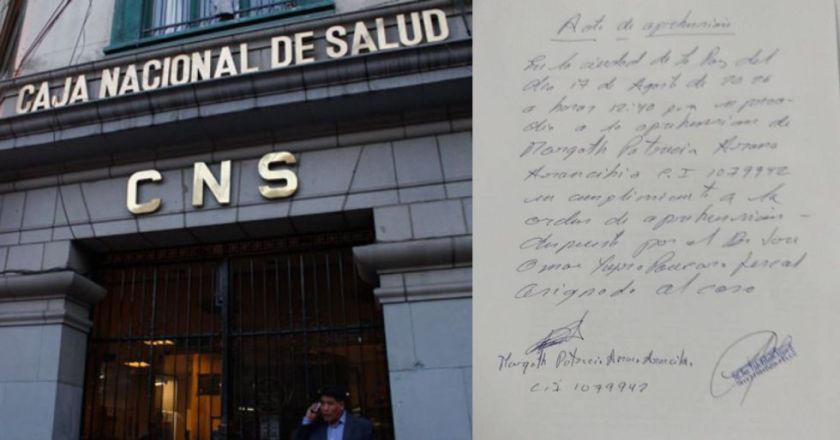 CAJA NACIONAL DE SALUD
CNS
Acta de aprehensión
En la ciudad de La Paz del
día 17 de Agosto de 2026
a horas 12:40 p.m. se proce-
dio a la aprehensión de
Margoth Patricia Arana
Arancibia C.I 1079942
en cumplimiento a la
orden de aprehensión
dispuesto por el Dr. Jose
Omar fiscal
asignado al caso
Margoth Patricia Arana Arancibia
C.I 1079942